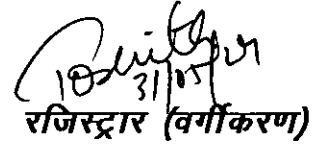 31/05/21
रजिस्ट्रार (वर्गीकरण)